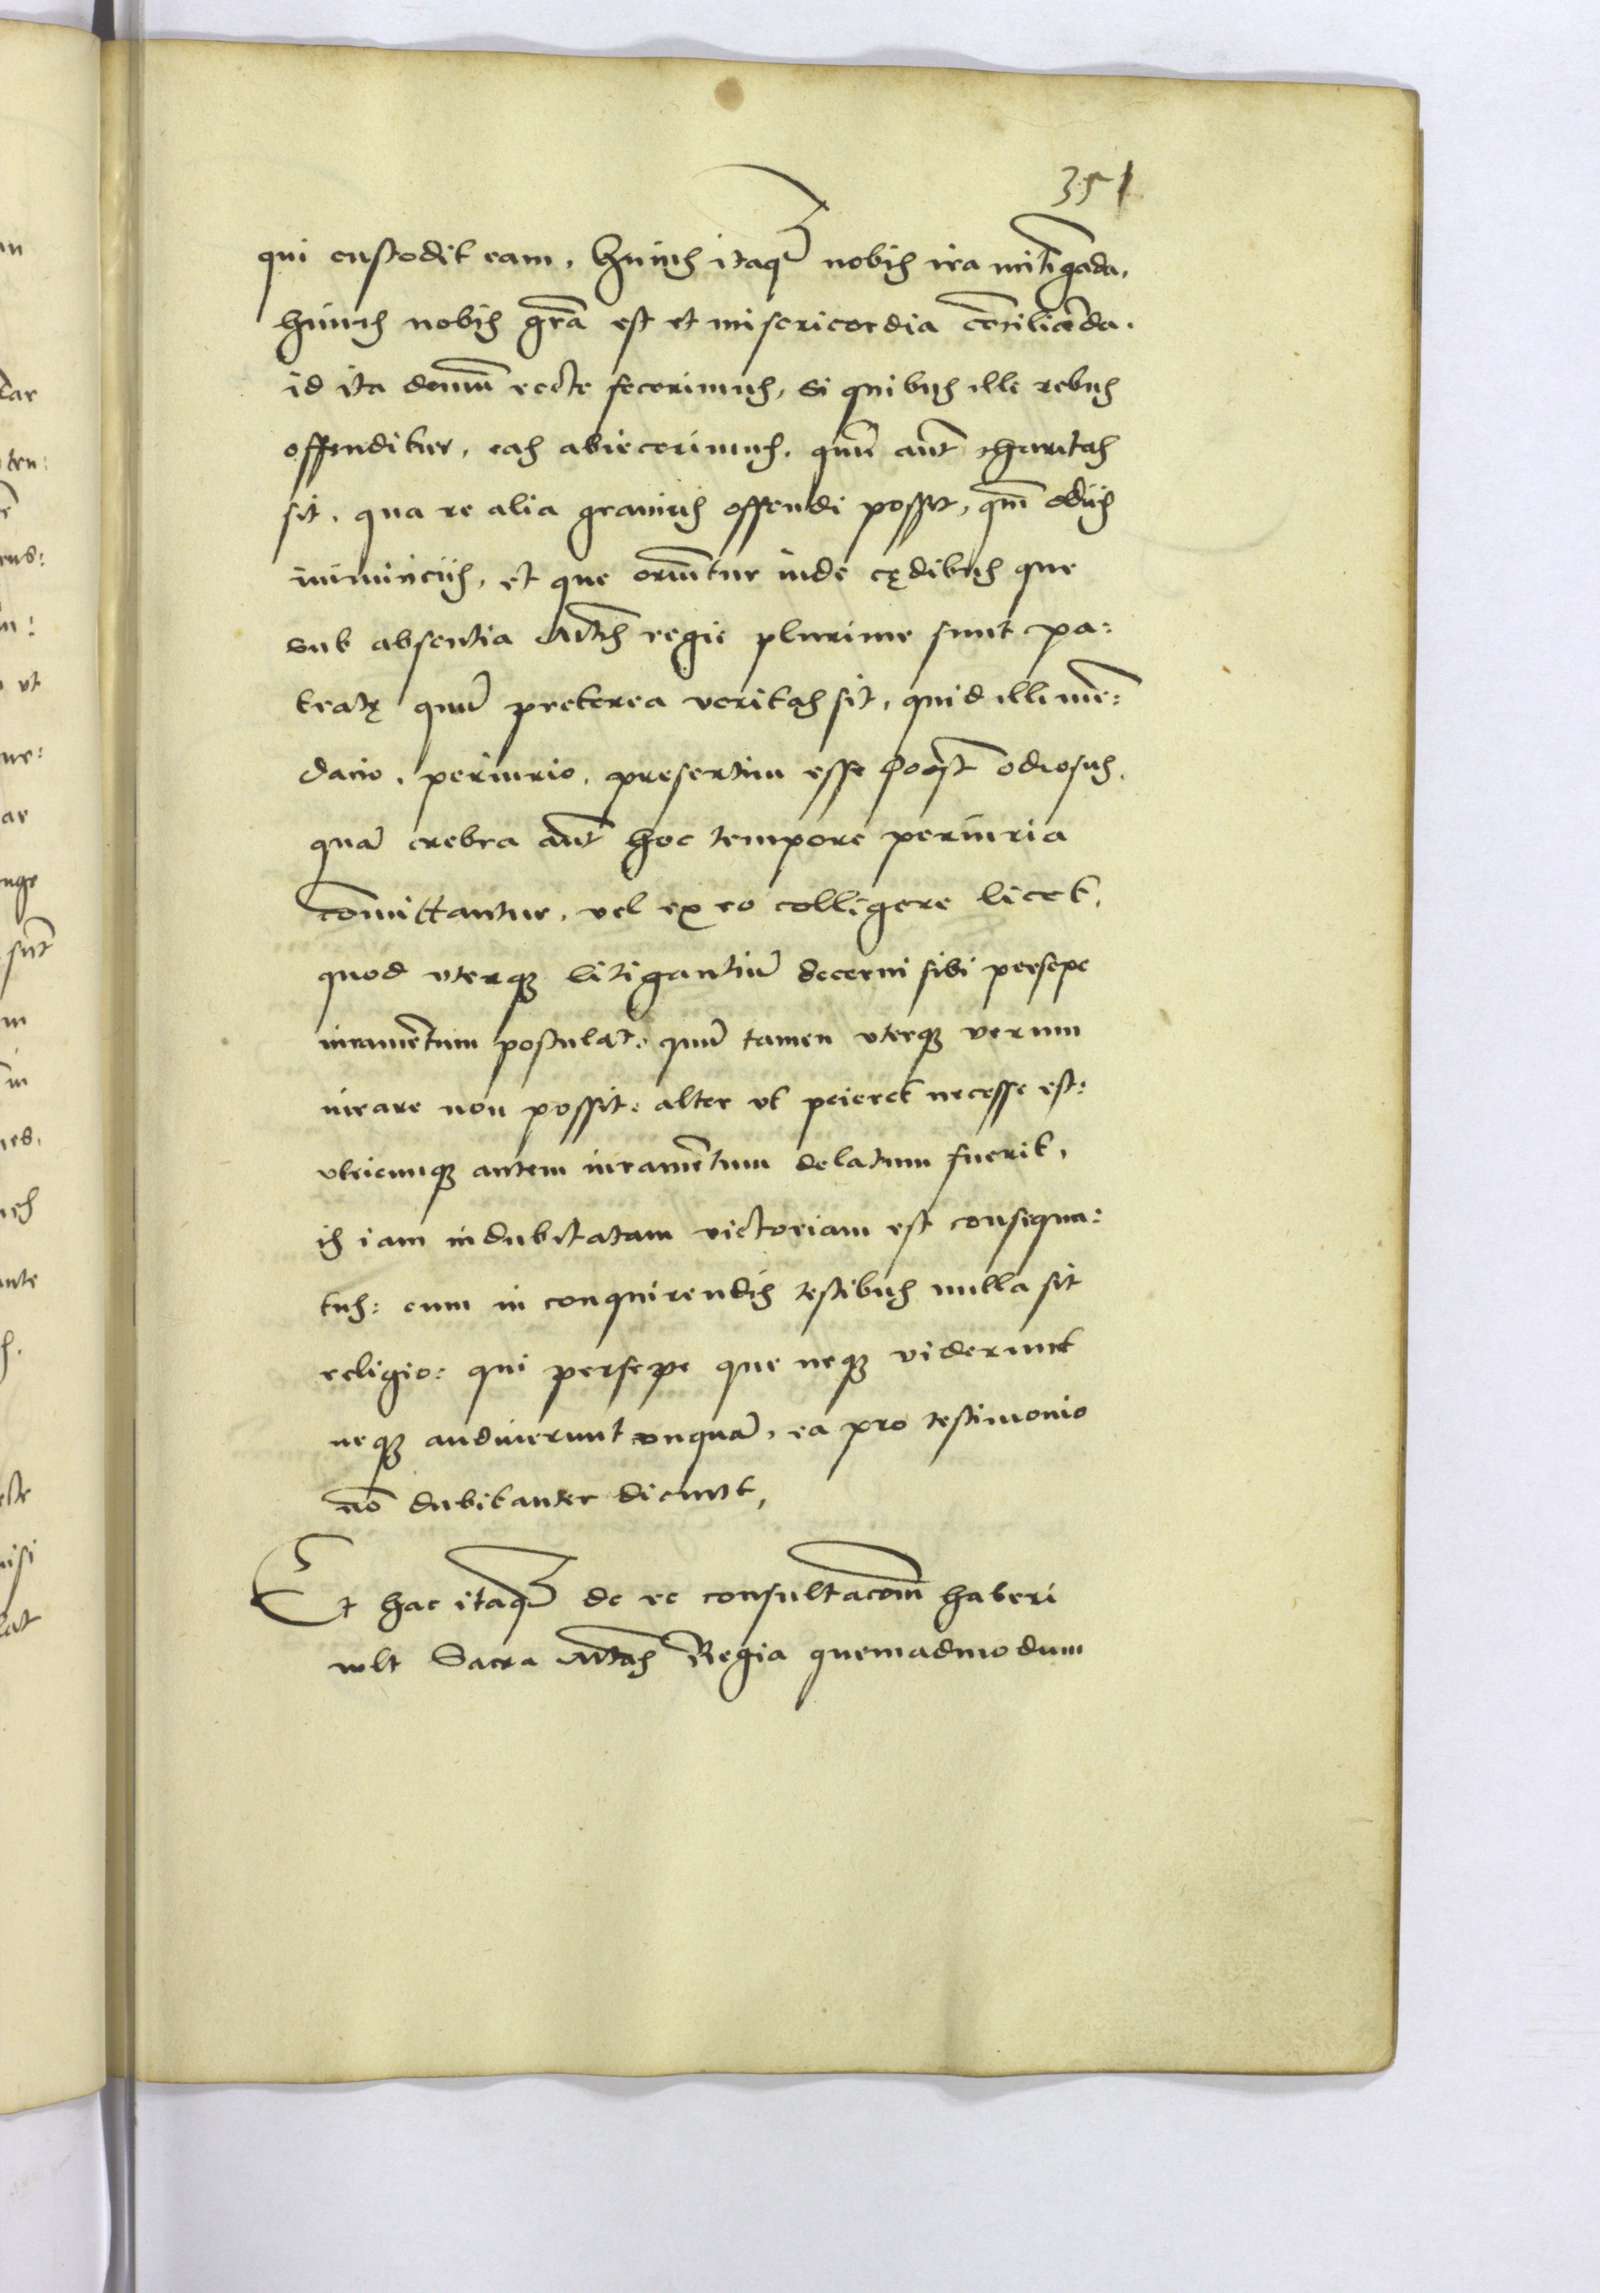 351
qui custodit eam, huius itaq̃ nobis ira mitigãda,
huius nobis grã est et misericordia cõciliãda.
id ita demũ recte fecerimus, si quibus ille rebus
offenditur, eas abiecerimus, quũ aut̃ charitas
sit, qua re alia grauius offendi possit, qm̃ odiis
inimiciis, et que oriũtur inde cędibus que
sub absentia Mtĩs regie plurime sunt pa:
tratę quũ preterea veritas sit, quid illi mẽ:
dacio, periurio, presertim esse põt odiosus,
quã crebra aut̃ hoc tempore periuria
cõmittantur, vel ex eo colligere licet,
quod uterqꝫ litigantiũ decerni sibi persepe
iuramẽtum postulat, quũ tamen uterqꝫ verum
iurare non possit: alter ut peieret necesse est:
utricunqꝫ autem iuramẽtum delatum fuerit,
is iam indubitatam victoriam est consequu:
tus: cum in conquirendis testibus nulla sit
religio: qui persepe que neqꝫ viderunt
neqꝫ audiuerunt unquã, ea pro testimonio
nõ dubitanter dicunt,
Et hac itaq̃ de re consultacõm haberi
vult Sacra Mtãs Regia quemadmodum
an
dar
ten:
ens:
ut
ar
nge
sũt
nes,
ante
este
nisi
lat